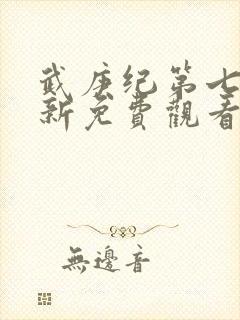 武庚纪第七
新免費觀看
無邊音